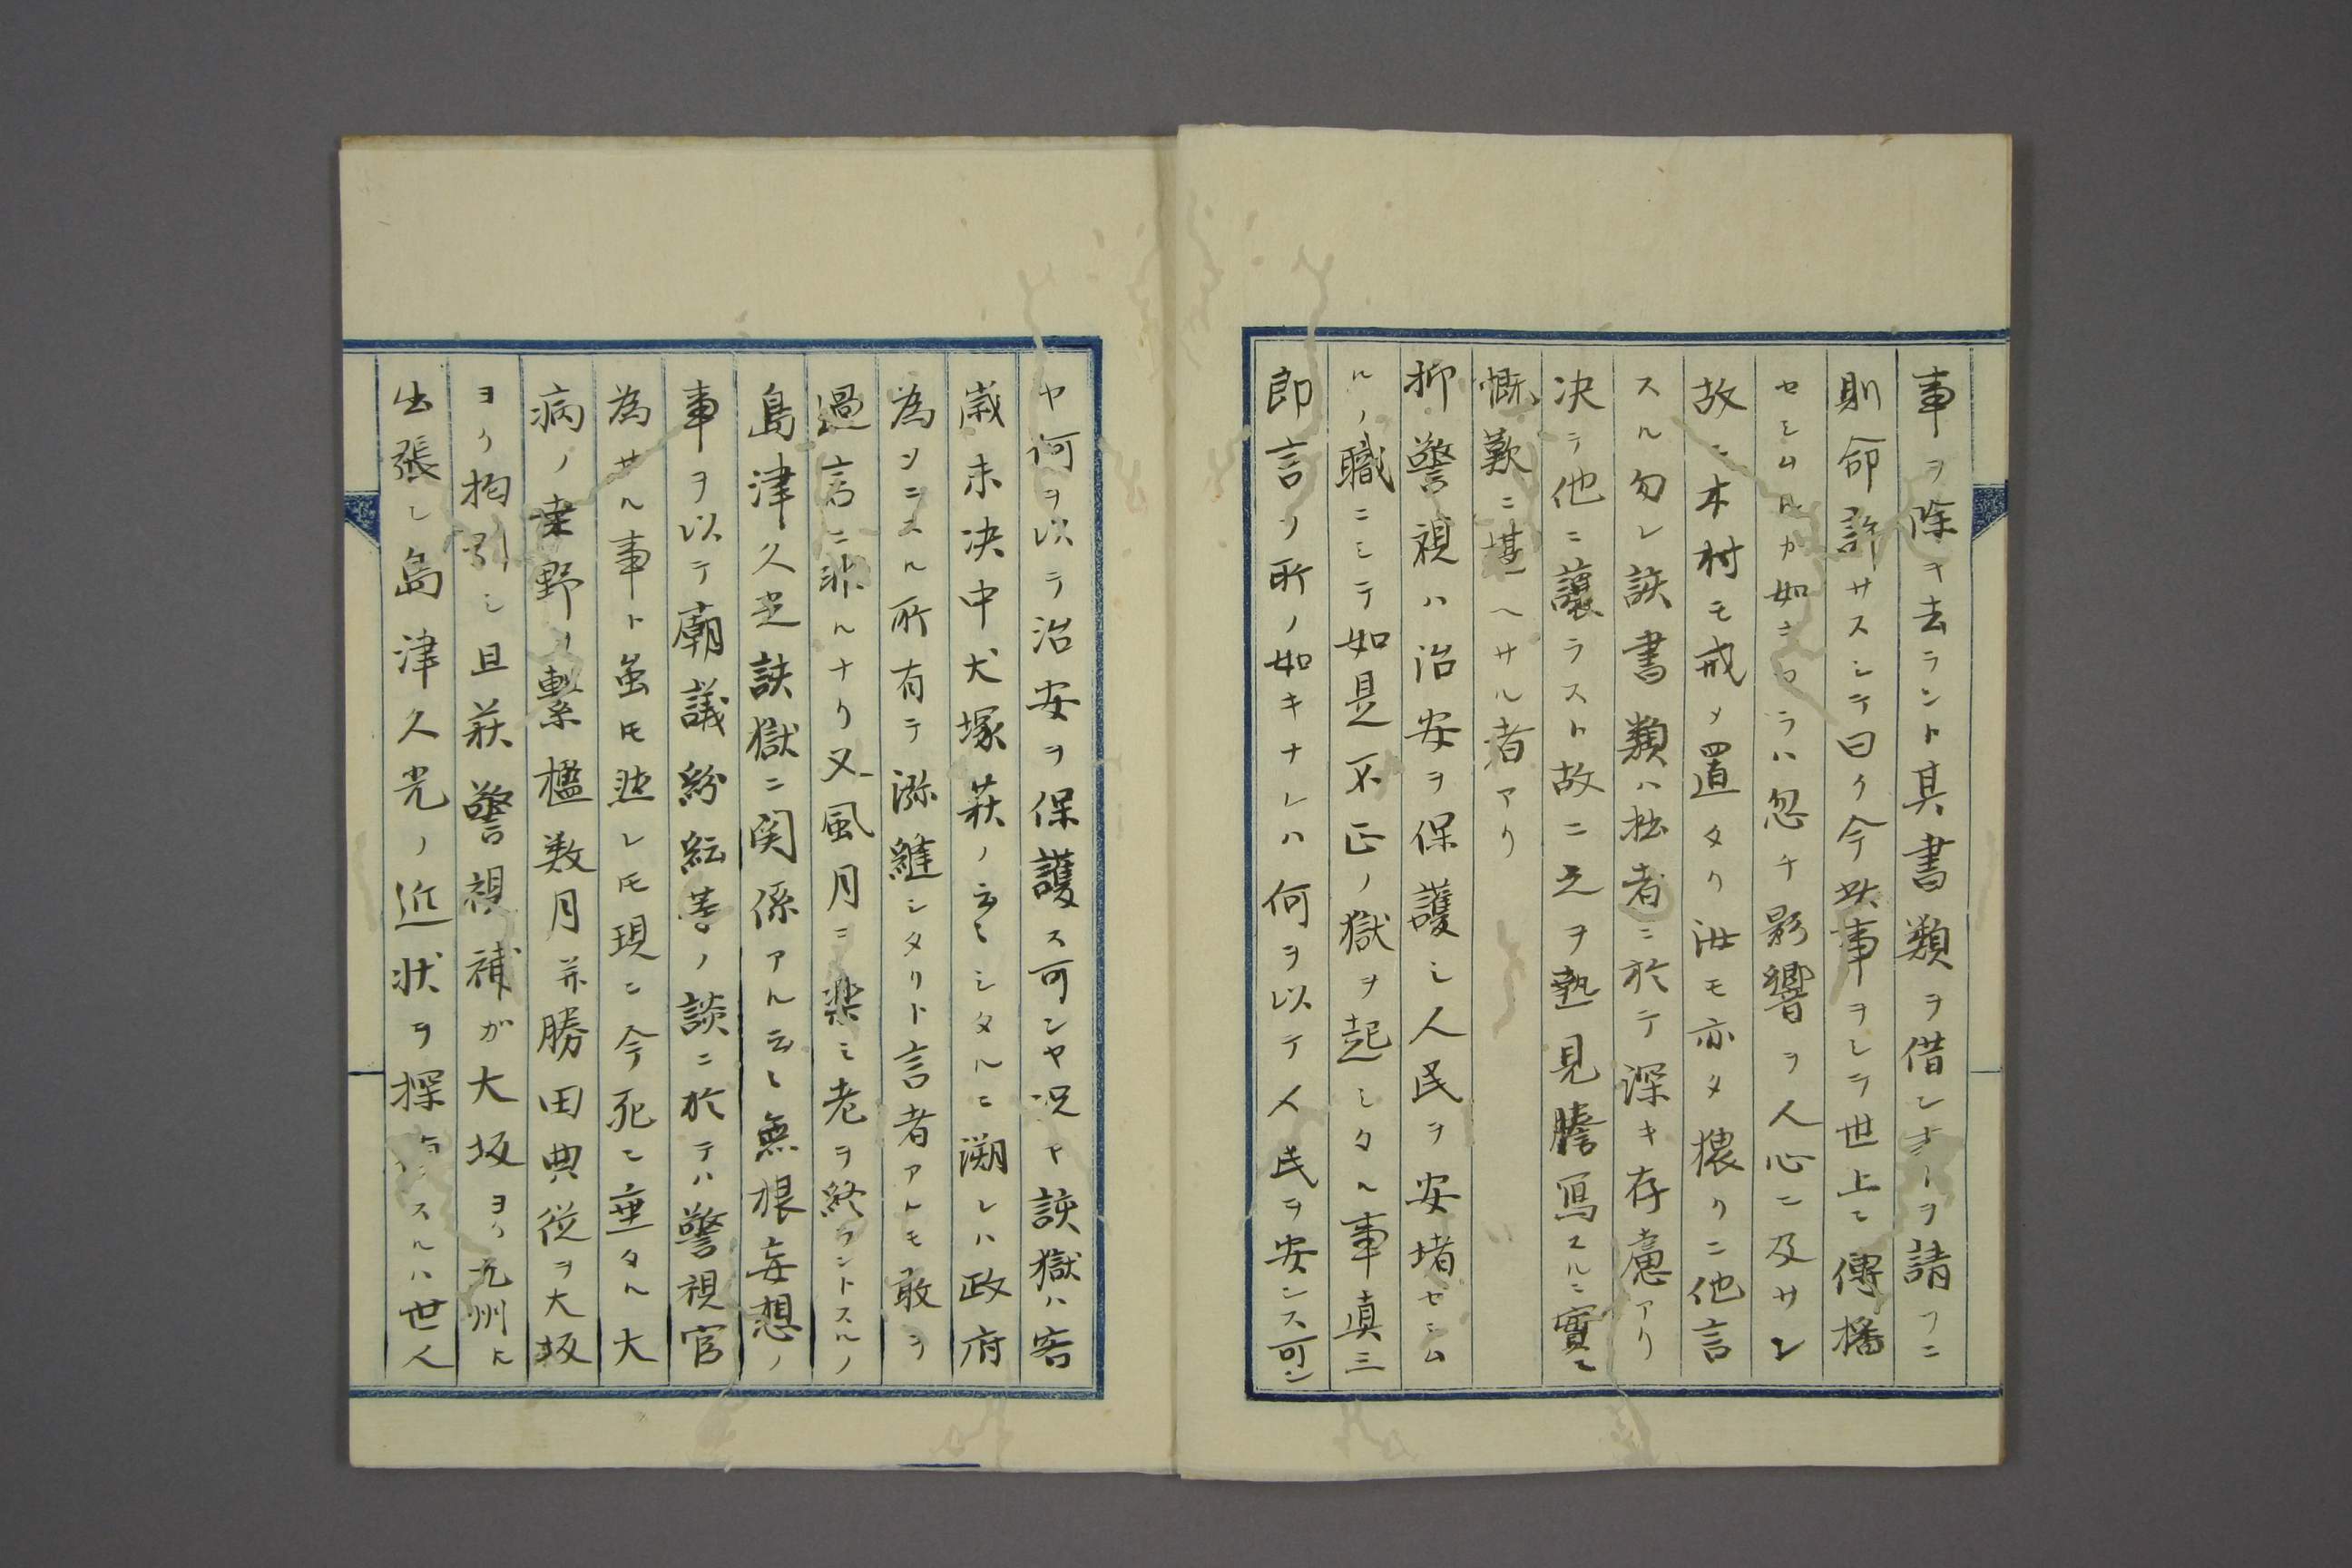 事ヲ除キ去ラント其書類ヲ借ンヿヲ請フニ
則命許サスシテ曰ク今此事ヲシテ世上ニ傳播
セシムルカ如キアラハ忽チ影響ヲ人心ニ及サン
故ニ木村モ戒メ置タリ汝モ亦タ猥リニ他言
スル勿レ該書類ハ拙者ニ於テ深キ存慮アリ
决テ他ニ讓ラスト故ニ之ヲ熟見謄寫スルニ實ニ
慨歎ニ堪ヘサル者アリ
抑警視ハ治安ヲ保護シ人民ヲ安堵セシム
ルノ職ニシテ如是不正ノ獄ヲ起シタル事真ニ
即言ノ所ノ如キナレハ何ヲ以テ人民ヲ安ンス可ン
ヤ何ヲ以テ治安ヲ保護ス可ンヤ况ヤ該獄ハ客
歳未决中犬塚萩ノ云々シタルニ溯レハ政府
為ンニスル所有テ漛縫シタリト言者アルモ敢ヲ
過言ニ非ルナリ又風月ニ楽ミ老ヲ終ラントスルノ
島津久光該獄ニ関係アル云々無根妄想ノ
事ヲ以テ廟議紛紜等ノ談ニ於テハ警視官
為サル事ト虽𪜈然レ𪜈現ニ今死ニ垂タル大
病ノ桒野ヲ繋檻数月并勝田典従ヲ大坂
ヨリ拘引シ且萩警視補が大坂ヨリ九州ヘ
出張シ島津久光ノ近状ヲ探ラスルハ世人